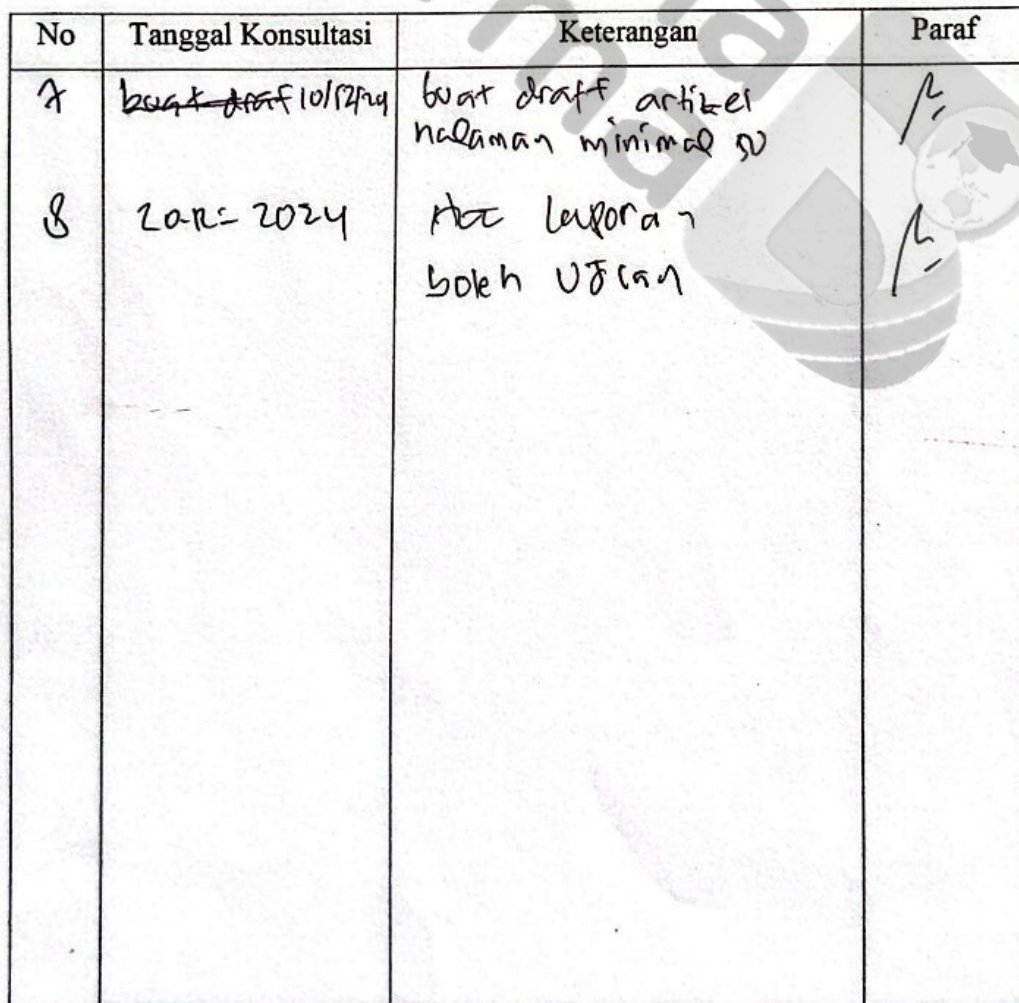 No Tanggal Konsultasi Keterangan Paraf
7 buat draf 10/12/24 buat draft artikel
halaman minimal 50
8 20-12-2024 Acc laporan
boleh Ujian